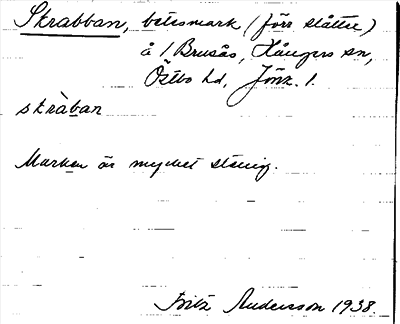 Skrabban, betesmark (förr slåtter)
å 1 Brusås, Kångers sn,
Östbo hd, Jönk. l.
skràban
Marken är mycket stenig.
Fritz Andersson 1938.